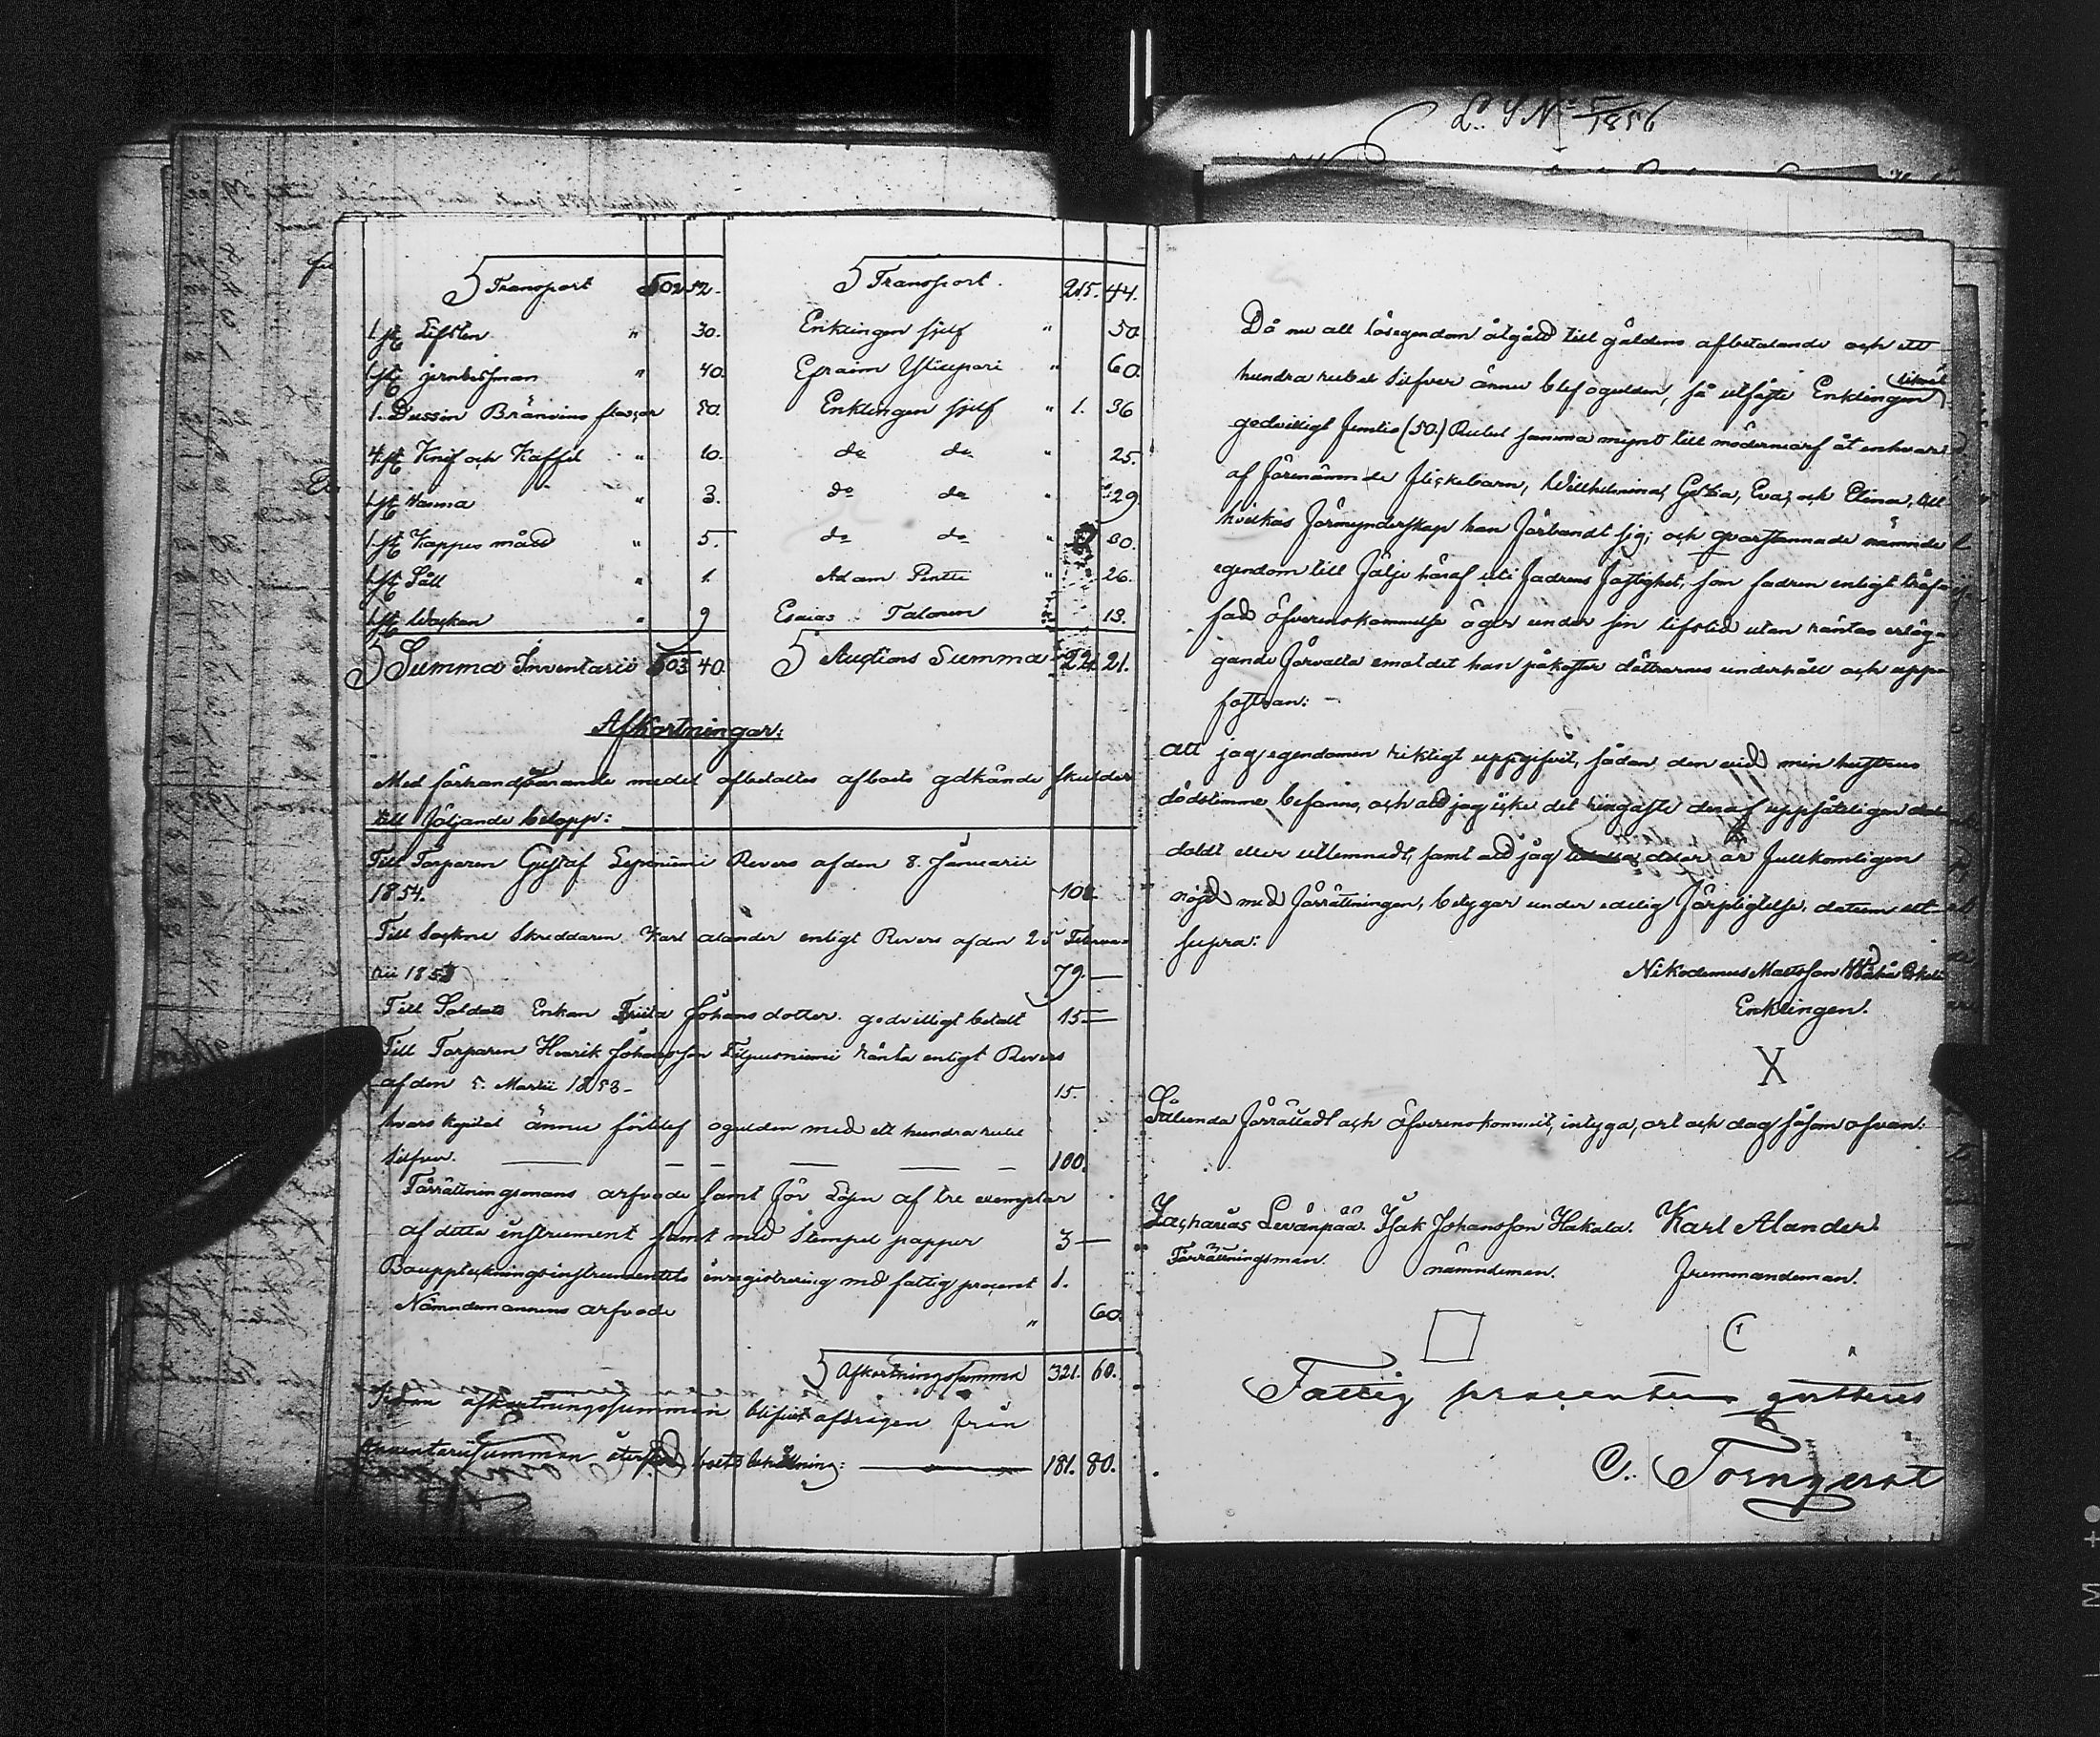 L. S. No 5/1856
Transport 502 52. Transport. 215. 44.
1 st. Lissten " 30. Enklingen sjelf " 50.
1 st. jernbesman " 40. Efraim Yliupari " 60.
1. Dussin Bränvins flaskor 50. Enklingen sjelf " 1. 36
4 st. Knif och Kaffel " 10. do do " 25.
1 st. " 3. do do " 29.
1 st. Kappes mått " 5. do do " 80.
1 st. Såll " 1. Adam Pentti " 26.
1 st. " 9 Esaias Talonen 13.
Summa Inventarii 503 40. Auctions Summa 221. 21.
Afkortningar:
Med förhandvarande medel afbetaltes afboets gdkände skulder
till följande belopp:
Till Torparen Gustaf Revers af den 8. Januarii
1854. 108.
Till Sockne Skreddaren Karl Alander enligt Revers af den 25 Februa-
rii 185 79. —
Till Soldats Enkan Johansdotter godvilligt betalt 15 —
Till Torparen Henrik Johansson Filpusniemi ränta enligt Revers
af den 5. Martii 1853 - 15.
hvars kapital ännu förblef ogulden med ett hundra rubel
silfver. — — — — — — 100.
Förrättningsmans arfvode samt för Lösn af tre exemplar
af detta instrument samt med Stempel papper 3 —
Bouppteckningsinstrumentets inregistrering med fattig procent 1.
Nämndemannens arfvode " 60.
Afkortningssumma 321. 60.
Sedan afkortningssumman blifvit afdragen från
Inventariisumman återstod boets behållning: — 181. 80.
Då nu all lösegendom åtgått till gäldens afbetalande och ett
hundra rubel Silfver ännu blef ogulden, så utfäste Enklingen likväl
godvilligt femtio (50.) Rubel samma mynt till mödernearf åt enhvar
af förenämnde flickebarn, Willhelmina, Greta, Eva, och Elina, till
hvilkas förmynderskap han förbandt sig; och qvarstannade nämnde
egendom till följe häraf uti fadrens fastighet, som fadren enligt träf-
fad öfverenskommelse äger under sin lifstid utan räntas erläg-
gande förvalta emot det han påkostar döttrarnes underhåll och upp-
fostran: -
Att jag egendomen riktigt uppgifvit, sådan den vid min hustrus
dödstimma befanns, och att jag icke det ringaste deraf uppsåteligen
doldt eller utlemnadt, samt att jag är fullkomligen
nöjd med förrättningen, betygar under edelig förpligtelse, datum ut
supra:
Nikodemus Mattsson
Enklingen.
X
Sålunda förrättadt och öfverenskommit, intyga, ort och dag såsom ofvan:
Zacharias Levänpää. Isak Johansson Hakala. Karl Alander.
Förrättningsman. nämndeman. fremmandeman.
Fattig procenten qvitteras
C. Törnqvist